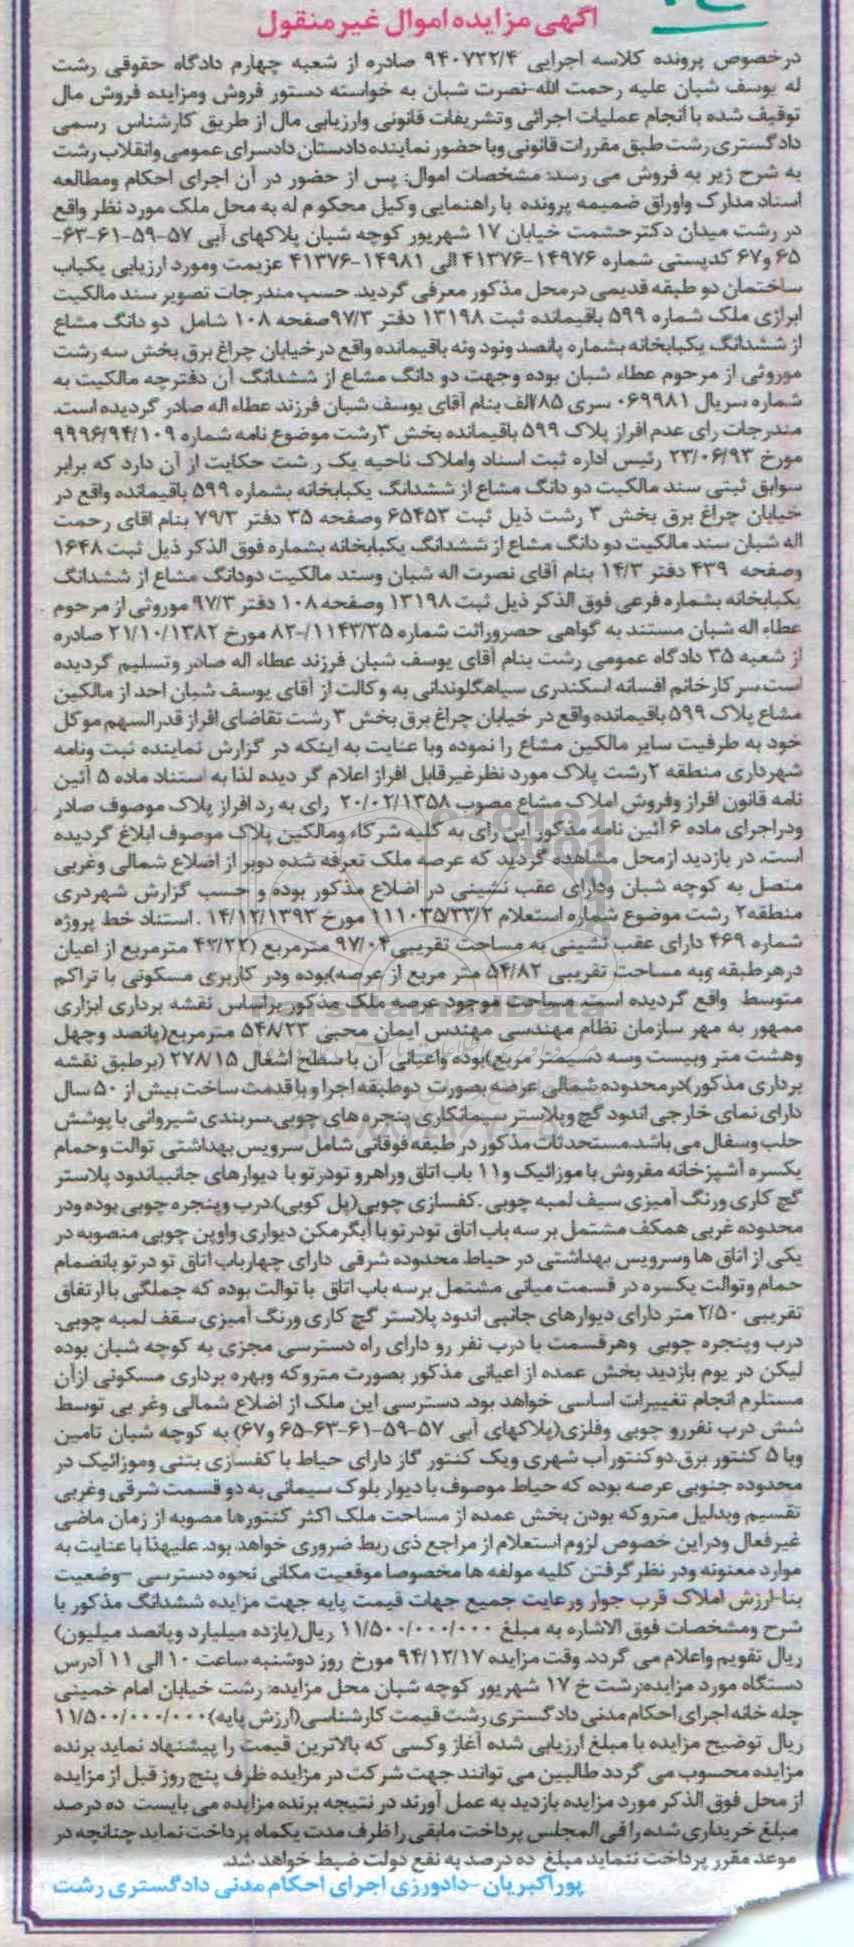 آگهی مزایده اموال غیر منقول
درخصوص پرونده کلاسه اجرایی ۹۴۰۷۲۲/۴ صادره از شعبه چهارم دادگاه حقوقی رشت
له یوسف شبان علیه رحمت الله-نصرت شبان به خواسته دستور فروش ومزایده فروش مال
توقیف شده با انجام عملیات اجرائی وتشریفات قانونی وارزیابی مال از طریق کارشناس رسمی
دادگستری رشت طبق مقررات قانونی وبا حضور نماینده دادستان دادسرای عمومی وانقلاب رشت
به شرح زیر به فروش می رسد: مشخصات اموال: پس از حضور در آن اجرای احکام ومطالعه
اسناد مدارک واوراق ضمیمه پرونده با راهنمایی وکیل محکوم له به محل ملک مورد نظر واقع
در رشت میدان دکترحشمت خیابان ۱۷ شهریور کوچه شبان پلاکهای آبی ۵۷-۵۹-۶۱-۶۳-
۶۵ و۶۷ کدپستی شماره ۱۴۹۷۶-۴۱۳۷۶ الی ۱۴۹۸۱-۴۱۳۷۶ عزیمت ومورد ارزیابی یکباب
ساختمان دو طبقه قدیمی درمحل مذکور معرفی گردید. حسب مندرجات تصویر سند مالکیت
ابرازی ملک شماره ۵۹۹ باقیمانده ثبت ۱۳۱۹۸ دفتر ۹۷/۳صفحه ۱۰۸ شامل دو دانگ مشاع
از ششدانگ یکبابخانه بشماره پانصد ونود ونه باقیمانده واقع در خیابان چراغ برق بخش سه رشت
موروثی از مرحوم عطاء شبان بوده وجهت دو دانگ مشاع از ششدانگ آن دفترچه مالکیت به
شماره سریال ۰۶۹۹۸۱ سری ۸۵/الف بنام آقای یوسف شبان فرزند عطاء اله صادر گردیده است.
مندرجات رای عدم افراز پلاک ۵۹۹ باقیمانده بخش ۳رشت موضوع نامه شماره ۹۹۹۶/۹۴/۱۰۹
مورخ ۲۳/۰۶/۹۳ رئیس اداره ثبت اسناد واملاک ناحیه یک رشت حکایت از آن دارد که برابر
سوابق ثبتی سند مالکیت دو دانگ مشاع از ششدانگ یکبابخانه بشماره ۵۹۹ باقیمانده واقع در
خیابان چراغ برق بخش ۳ رشت ذیل ثبت ۶۵۴۵۳ وصفحه ۳۵ دفتر ۷۹/۳ بنام اقای رحمت
اله شبان سند مالکیت دو دانگ مشاع از ششدانگ یکبابخانه بشماره فوق الذکر ذیل ثبت ۱۶۴۸
وصفحه ۴۳۹ دفتر ۱۴/۳ بنام آقای نصرت اله شبان وسند مالکیت دودانگ مشاع از ششدانگ
یکبابخانه بشماره فرعی فوق الذکر ذیل ثبت ۱۳۱۹۸ وصفحه ۱۰۸ دفتر ۹۷/۳ موروثی از مرحوم
عطاء اله شبان مستند به گواهی حصروراثت شماره ۱۱۴۳/۳۵/-۸۲ مورخ ۲۱/۱۰/۱۳۸۲ صادره
از شعبه ۳۵ دادگاه عمومی رشت بنام آقای یوسف شبان فرزند عطاء اله صادر وتسلیم گردیده
است.سرکارخانم افسانه اسکندری سیاهگلوندانی به وکالت از آقای یوسف شبان احد از مالکین
مشاع پلاک ۵۹۹ باقیمانده واقع در خیابان چراغ برق بخش ۳ رشت تقاضای افراز قدرالسهم موکل
خود به طرفیت سایر مالکین مشاع را نموده وبا عنایت به اینکه در گزارش نماینده ثبت ونامه
شهرداری منطقه ۲رشت پلاک مورد نظرغیرقابل افراز اعلام گر دیده لذا به استناد ماده ۵ آئین
نامه قانون افراز وفروش املاک مشاع مصوب ۲۰/۰۲/۱۳۵۸ رای به رد افراز پلاک موصوف صادر
ودراجرای ماده ۶ آئین نامه مذکور این رای به کلیه شرکاء ومالکین پلاک موصوف ابلاغ گردیده
است. در بازدید ازمحل مشاهده گردید که عرصه ملک تعرفه شده دوبر از اضلاع شمالی وغربی
متصل به کوچه شبان ودارای عقب نشینی در اضلاع مذکور بوده و حسب گزارش شهردری
منطقه۲ رشت موضوع شماره استعلام ۱۱۱۰۳۵/۳۳/۲ مورخ ۱۴/۱۲/۱۳۹۳ . استناد خط پروژه
شماره ۴۶۹ دارای عقب نشینی به مساحت تقریبی۹۷/۰۴ مترمربع (۴۲/۲۲ مترمربع از اعیان
درهرطبقه وبه مساحت تقریبی ۵۴/۸۲ متر مربع از عرصه)بوده ودر کاربری مسکونی با تراکم
متوسط واقع گردیده است. مساحت موجود عرصه ملک مذکور براساس نقشه برداری ابزاری
ممهور به مهر سازمان نظام مهندسی مهندس ایمان محبی ۵۴۸/۲۳ مترمربع(پانصد وچهل
وهشت متر وبیست وسه دسیمتر مربع)بوده واعیانی آن با سطح اشغال ۲۷۸/۱۵ (برطبق نقشه
برداری مذکور)درمحدوده شمالی عرصه بصورت دوطبقه اجرا و با قدمت ساخت بیش از ۵۰ سال
دارای نمای خارجی اندود گچ وپلاستر سیمانکاری پنجره های چوبی.سربندی شیروانی با پوشش
حلب وسفال می باشد.مستحدثات مذکور در طبقه فوقانی شامل سرویس بهداشتی توالت وحمام
یکسره آشپزخانه مفروش با موزائیک و۱۱ باب اتاق وراهرو تودرتو با دیوارهای جانبیاندود پلاستر
گچ کاری ورنگ آمیزی سیف لمبه چوبی .کفسازی چوبی(پل کوبی).درب وپنجره چوبی بوده ودر
محدوده غربی همکف مشتمل بر سه باب اتاق تودرتو با آبگرمکن دیواری واوپن چوبی منصوبه در
یکی از اتاق ها وسرویس بهداشتی در حیاط محدوده شرقی دارای چهارباب اتاق تو درتو بانضمام
حمام وتوالت یکسره در قسمت میانی مشتمل برسه باب اتاق با توالت بوده که جملگی با ارتفاق
تقریبی ۲/۵۰ متر دارای دیوارهای جانبی اندود پلاستر گچ کاری ورنگ آمیزی سقف لمبه چوبی.
درب وپنجره چوبی وهرقسمت با درب نفر رو دارای راه دسترسی مجزی به کوچه شبان بوده
لیکن در یوم بازدید بخش عمده از اعیانی مذکور بصورت متروکه وبهره برداری مسکونی ازآن
مستلزم انجام تغییرات اساسی خواهد بود. دسترسی این ملک از اضلاع شمالی وغر بی توسط
شش درب نفررو چوبی وفلزی(پلاکهای آبی ۵۷-۵۹-۶۱-۶۳-۶۵ و۶۷) به کوچه شبان تامین
وبا ۵ کنتور برق.دوکنتورآب شهری ویک کنتور گاز دارای حیاط با کفسازی بتنی وموزائیک در
محدوده جنوبی عرصه بوده که حیاط موصوف با دیوار بلوک سیمانی به دو قسمت شرقی وغربی
تقسیم وبدلیل متروکه بودن بخش عمده از مساحت ملک اکثر کنتورها مصوبه از زمان ماضی
غیرفعال ودراین خصوص لزوم استعلام از مراجع ذی ربط ضروری خواهد بود. علیهذا با عنایت به
موارد معنونه ودر نظر گرفتن کلیه مولفه ها مخصوصا موقعیت مکانی نحوه دسترسی –وضعیت
بنا-ارزش املاک قرب جوار ورعایت جمیع جهات قیمت پایه جهت مزایده ششدانگ مذکور با
شرح ومشخصات فوق الاشاره به مبلغ ۱۱/۵۰۰/۰۰۰/۰۰۰ ریال(یازده میلیارد وپانصد میلیون)
ریال تقویم واعلام می گردد. وقت مزایده ۹۴/۱۲/۱۷ مورخ روز دوشنبه ساعت ۱۰ الی ۱۱ آدرس
دستگاه مورد مزایده:رشت خ ۱۷ شهریور کوچه شبان محل مزایده: رشت خیابان امام خمینی
چله خانه اجرای احکام مدنی دادگستری رشت قیمت کارشناسی(ارزش پایه)۱۱/۵۰۰/۰۰۰/۰۰۰
ریال توضیح مزایده با مبلغ ارزیابی شده آغاز وکسی که بالاترین قیمت را پیشنهاد نماید برنده
مزایده محسوب می گردد طالبین می توانند جهت شرکت در مزایده ظرف پنج روز قبل از مزایده
از محل فوق الذکر مورد مزایده بازدید به عمل آورند در نتیجه برنده مزایده می بایست ده درصد
مبلغ خریداری شده را فی المجلس پرداخت مابقی را ظرف مدت یکماه پرداخت نماید چنانچه در
موعد مقرر پرداخت ننماید مبلغ ده درصد به نفع دولت ضبط خواهد شد.
پوراکبریان -دادورزی اجرای احکام مدنی دادگستری رشت